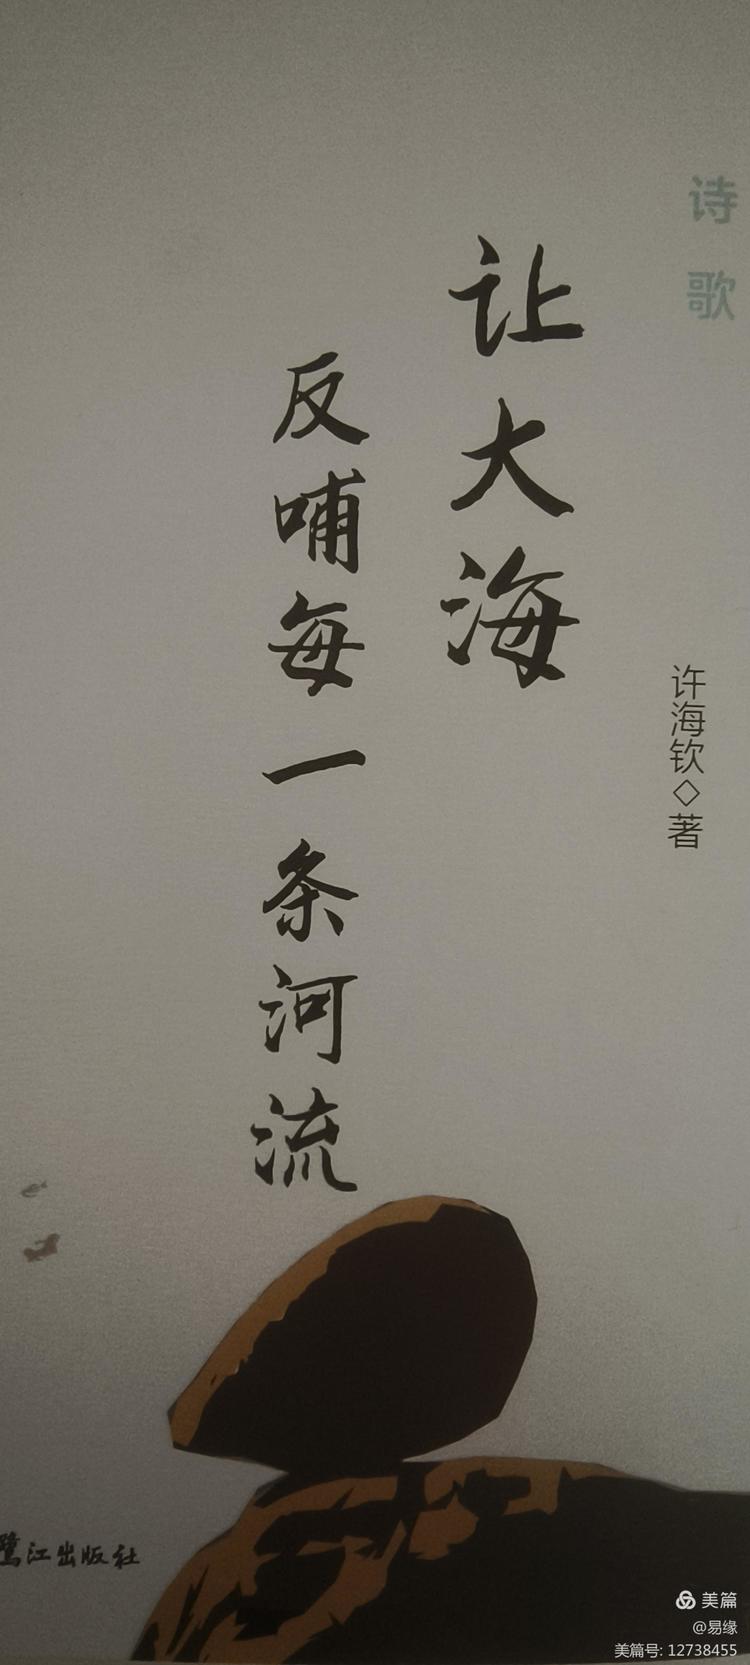 诗歌
让大海
反哺每一条河流
许海钦◇著
鹭江出版社
美篇
@易缘
美篇号: 12738455